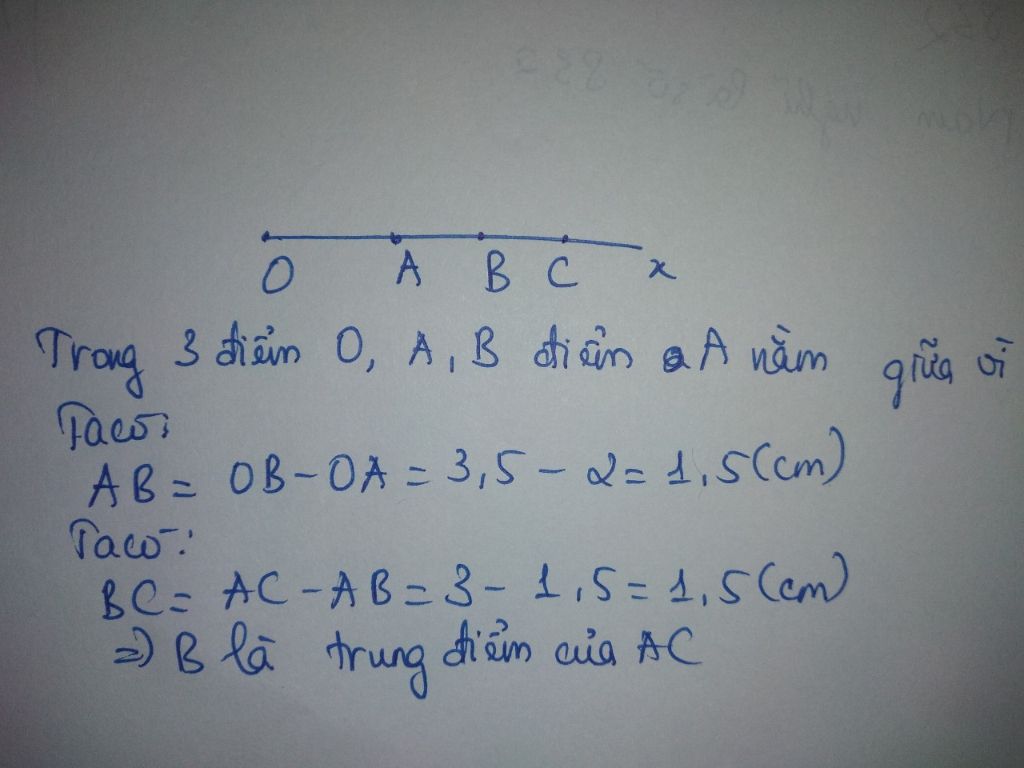 O A B C x
Trong 3 điểm O, A, B điểm A nằm giữa vì
Ta có:
AB = OB - OA = 3,5 - 2 = 1,5 (cm)
Ta có:
BC = AC - AB = 3 - 1,5 = 1,5 (cm)
=) B là trung điểm của AC